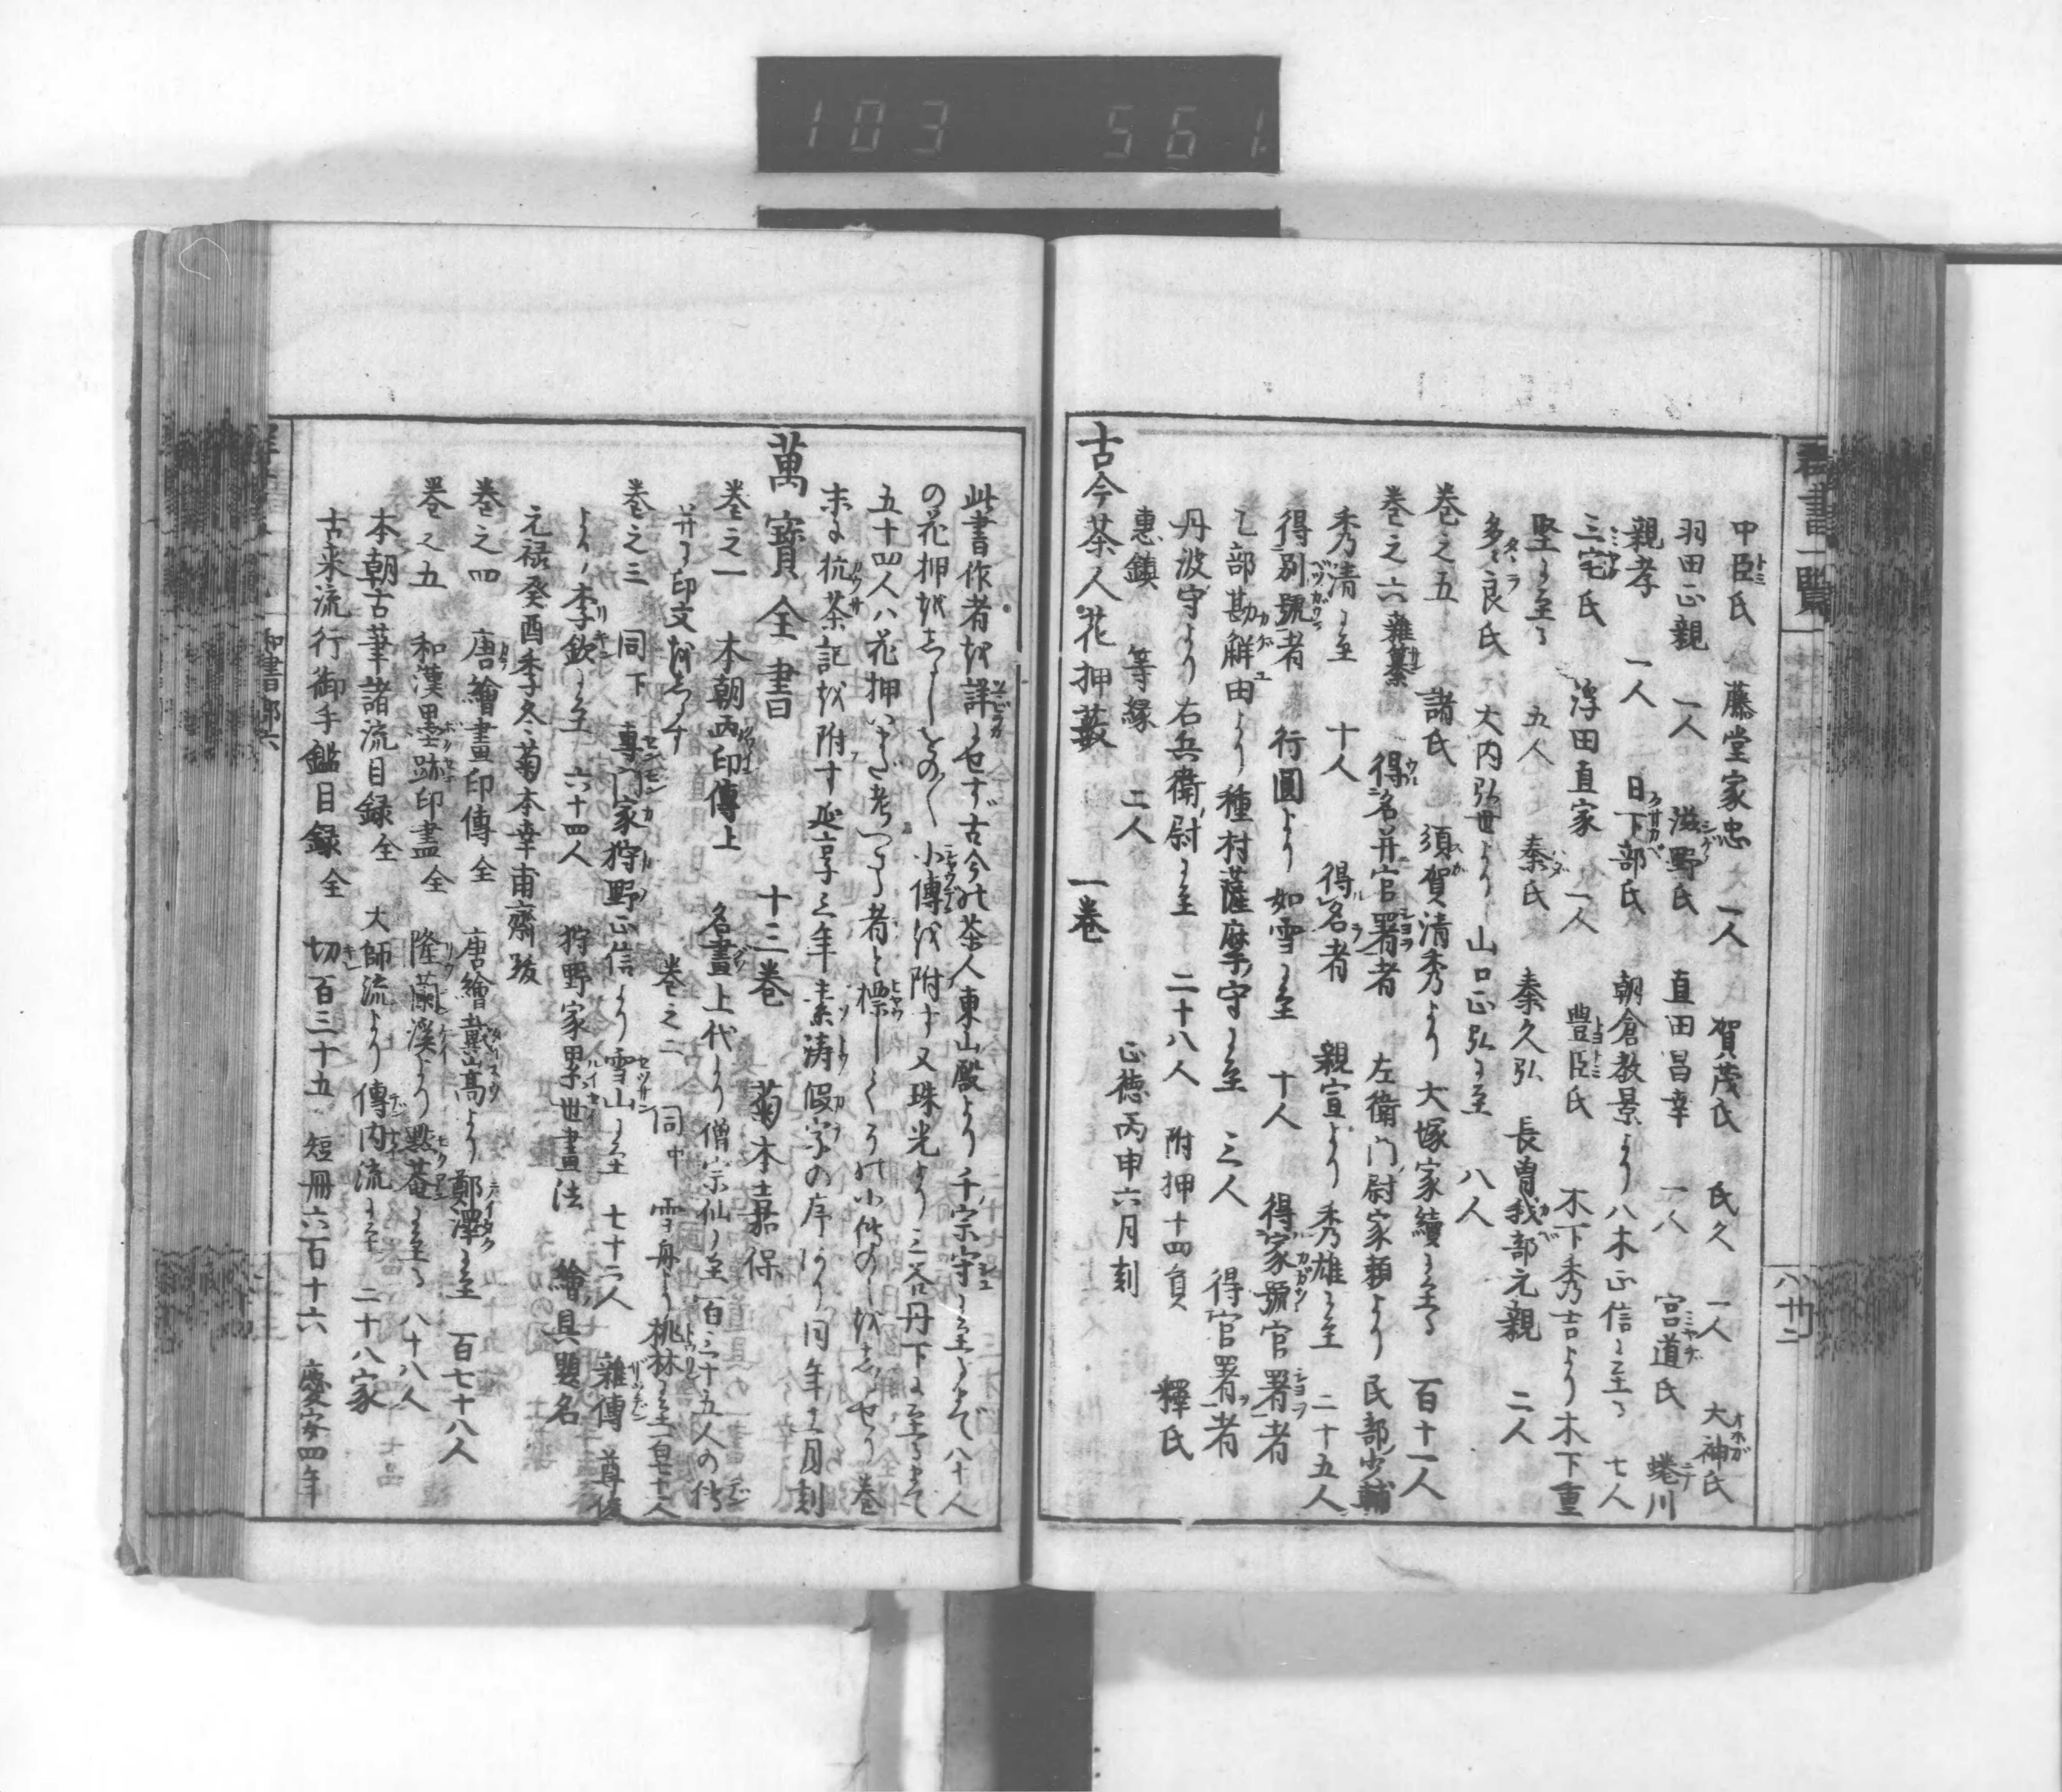 103 561
群書一覧
八 廿二
中臣氏 藤堂家忠 一人 賀茂氏 氏久 一人 大神氏
羽田正親 一人 滋野氏 直田昌幸 一人 宮道氏 蜷川
親孝 一人 日下部氏 朝倉教景より八木正信に至る 七人
三宅氏 浮田直家 一人 豊臣氏 木下秀吉より木下重
堅に至る 五人 秦氏 秦久弘 長曽我部元親 二人
多々良氏 大内弘世より山口正弘に至 八人
巻之五 諸氏 須賀清秀より大塚家續に至る 百十一人
巻之六 雜纂 得名并官署者 左衛門尉家頼より民部少輔
秀清に至 十人 得名者 親宣より秀雄に至 二十五人
得別號者 行圓より如雪に至 十人 得家號官署者
乙部勘解由より種村薩摩守に至 三人 得官署者
丹波守より右兵衛尉に至 二十八人 附押十四員 釋氏
惠鎮 等縁 二人 正徳丙申六月刻
古今茶人花押藪 一巻
此書作者を詳にせず古今の茶人東山殿より千宗守に至るまで八十人
の花押をしるしそのゝ小傳を附す又珠光より三谷丹下に至るまて
五十四人ハ花押いまだ考つる者と標しくるの小傳のしをしるせり巻
末に抗茶記を附す延享三年素濤假字の序あり同年十一月刻
萬寶全書 十三巻 菊本嘉保
巻之一 本朝画印傳上 名畫上代より僧宗仙に至 百三十五人の傳
并に印文をしるす 巻之二 同中 雪舟より桃林に至一百十二人
巻之三 同下 專門家狩野正信より雪山に至 七十二人 雜傳 尊後
より李欽に至 六十四人 狩野家累世畫法 繪具題名
元禄癸酉季冬菊本幸甫齋跋
巻之四 唐繪畫印傳全 唐繪戴嵩より鄭澤に至 百七十八人
巻之五 和漢墨跡印盡全 隆蘭溪より默菴に至る 八十八人
本朝古筆諸流目録全 大師流より傳内流に至 二十八家
古来流行御手鑑目録全 切百三十五 短冊六百十六 慶安四年
和書部六